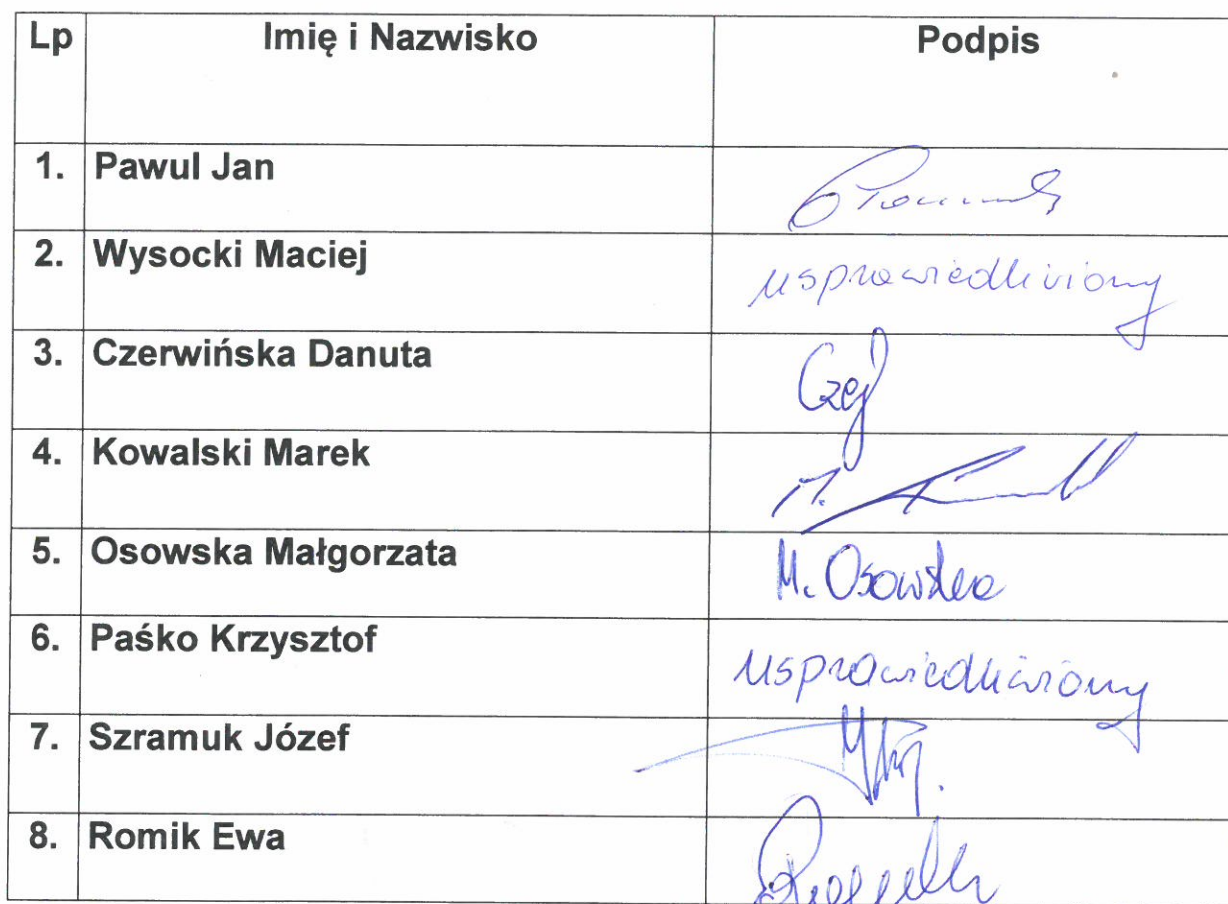 Lp Imię i Nazwisko Podpis
1. Pawul Jan
2. Wysocki Maciej usprawiedliwiony
3. Czerwińska Danuta
4. Kowalski Marek
5. Osowska Małgorzata M. Osowska
6. Paśko Krzysztof usprawiedliwiony
7. Szramuk Józef
8. Romik Ewa